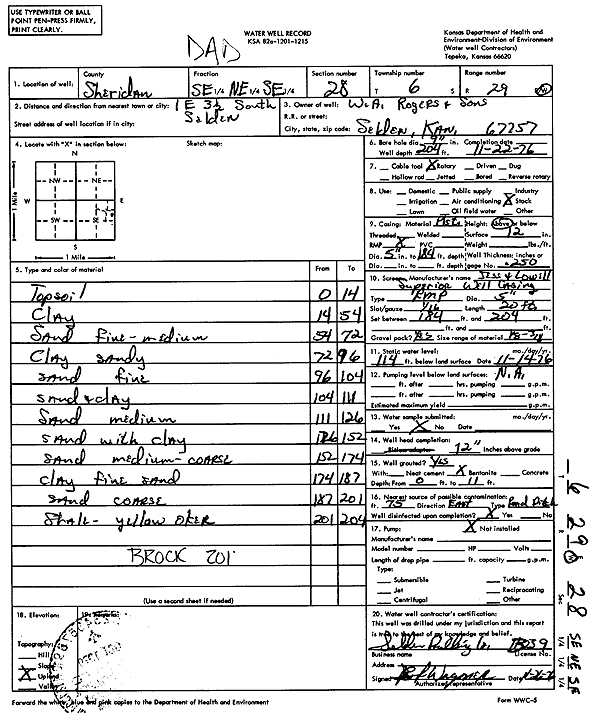 USE TYPEWRITER OR BALL
POINT PEN-PRESS FIRMLY,
PRINT CLEARLY.
DAD
WATER WELL RECORD
KSA 82a-1201-1215
Kansas Department of Health and
Environment-Division of Environment
(Water well Contractors)
Topeka, Kansas 66620
1. Location of well: County Sheridan Fraction SE 1/4 NE 1/4 SE 1/4 Section number 28 Township number T 6 S Range number R 29 W
2. Distance and direction from nearest town or city: 1 E 3½ South Selden
Street address of well location if in city:
3. Owner of well: W.A. Rogers & Sons
R.R. or street:
City, state, zip code: Selden, Kan. 67757
4. Locate with "X" in section below: Sketch map:
N
NW NE
W E
SW SE
S
1 Mile
1 Mile
6. Bore hole dia. 9" in. Completion date
Well depth 204 ft. 11-22-76
7. Cable tool X Rotary Driven Dug
Hollow rod Jetted Bored Reverse rotary
8. Use: Domestic Public supply Industry
Irrigation Air conditioning X Stock
Lawn Oil field water Other
9. Casing: Material Height: Above or below
Threaded Welded Surface 12 in.
RMP X PVC Weight lbs./ft.
Dia. 5" in. to 184 ft. depth Wall Thickness: inches or
Dia. in. to ft. depth gage No. .250
5. Type and color of material From To
Topsoil 0 14
Clay 14 54
Sand fine-medium 54 72
Clay sandy 72 96
sand fine 96 104
sand & clay 104 111
Sand medium 111 126
sand with clay 126 152
sand medium-coarse 152 174
clay fine sand 174 187
sand coarse 187 201
Shale - yellow oker 201 204
BROCK 201'
(Use a second sheet if needed)
10. Screen: Manufacturer's name
Superior Well Casing
Type RMP Dia. 5"
Slot/gauze 1/16 Length 20 ft
Set between 184 ft. and 204 ft.
ft. and ft.
Gravel pack? Size range of material
11. Static water level: mo./day/yr.
114 ft. below land surface Date 11-14-76
12. Pumping level below land surfaces: N.A.
ft. after hrs. pumping g.p.m.
ft. after hrs. pumping g.p.m.
Estimated maximum yield g.p.m.
13. Water sample submitted: mo./day/yr.
Yes X No Date
14. Well head completion:
Pitless adapter 12" Inches above grade
15. Well grouted? Yes
With: Neat cement X Bentonite Concrete
Depth: From 0 ft. to 11 ft.
16. Nearest source of possible contamination:
ft. 75 Direction East Type
Well disinfected upon completion? X Yes No
17. Pump: X Not installed
Manufacturer's name
Model number HP Volts
Length of drop pipe ft. capacity g.p.m.
Type:
Submersible Turbine
Jet Reciprocating
Centrifugal Other
18. Elevation:
Topography:
Hill
Slope
X Upland
Valley
19. Remarks:
20. Water well contractor's certification:
This well was drilled under my jurisdiction and this report
is true to the best of my knowledge and belief.
Business name License No.
Address
Signed Date
Authorized representative
Forward the white, blue and pink copies to the Department of Health and Environment
Form WWC-5
T 6 R 29 W Sec 28 SE NE SE
1/4 1/4 1/4